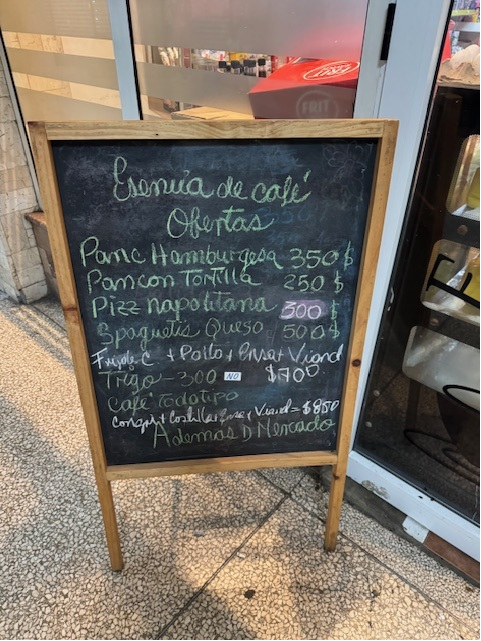 FRIT
Esencia de café
Ofertas
Panc Hamburgesa 350$
Pancon Tortilla 250 $
Pizz napolitana 300 $
Spaguetis Queso 500$
Frijole C + Pollo + Ensa + Viand
Trigo - 300 NO $700
Café Todotipo
Congri + Costilla + Ense + Viand = $850
Ademas D Mercado